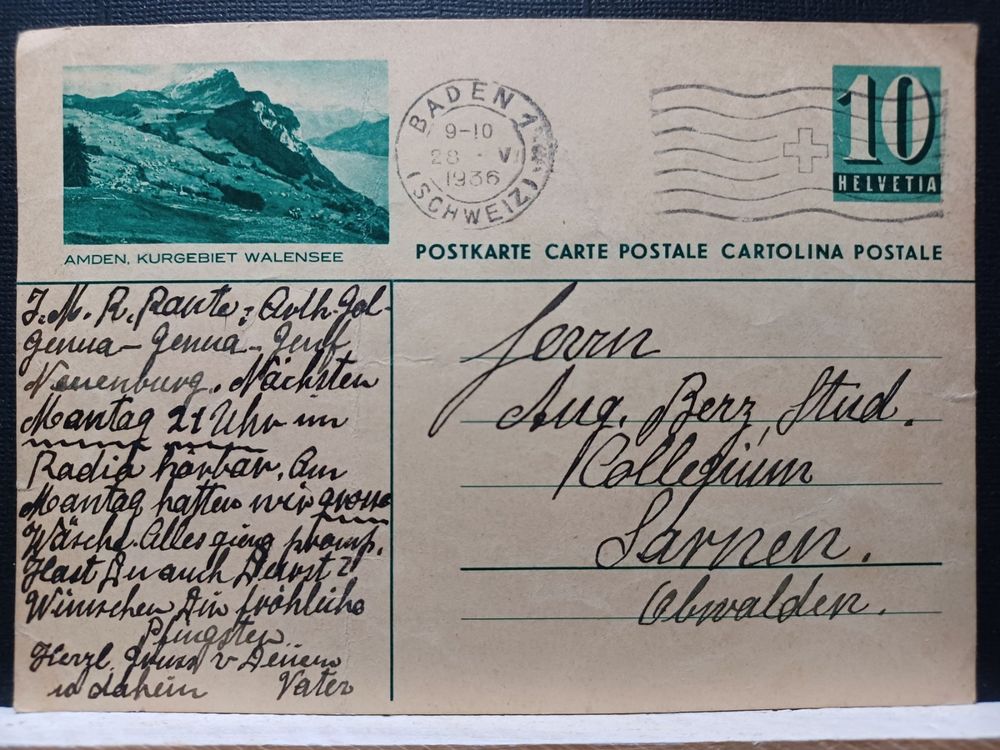 AMDEN, KURGEBIET WALENSEE
BADEN 1
9-10
28. V
1936
(SCHWEIZ)
10
HELVETIA
POSTKARTE CARTE POSTALE CARTOLINA POSTALE
J. M. R. Route: Arth-Gol-
Genua - Genua - Genf
Neuenburg. Nächsten
Montag 21 Uhr im
Radio hörbar. Am
Montag hatten wir grosse
Wäsche. Alles gieng promp.
Hast Du auch Durst?
Wünschen Dir fröhliche
Pfingsten
Herzl. Gruss v Deinem
u daheim Vater
Herrn
Aug. Berz, Stud.
Kollegium
Sarnen.
Obwalden.